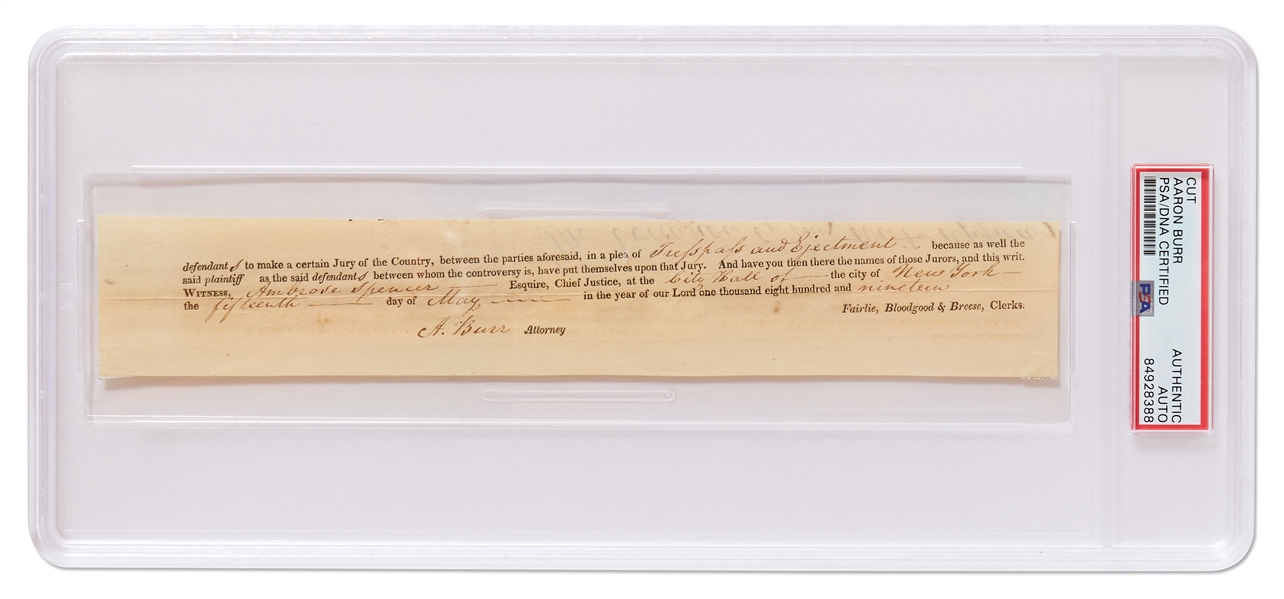 defendants to make a certain Jury of the Country, between the parties aforesaid, in a plea of Trespass and Ejectment because as well the
said plaintiff as the said defendants between whom the controversy is, have put themselves upon that Jury. And have you then there the names of those Jurors, and this writ.
WITNESS, Ambrose Spencer Esquire, Chief Justice, at the City Hall of the city of New York
the fifteenth day of May in the year of our Lord one thousand eight hundred and nineteen
Fairlie, Bloodgood & Breese, Clerks.
A. Burr Attorney
CUT
AARON BURR
PSA/DNA CERTIFIED
PSA
AUTHENTIC
AUTO
84928388